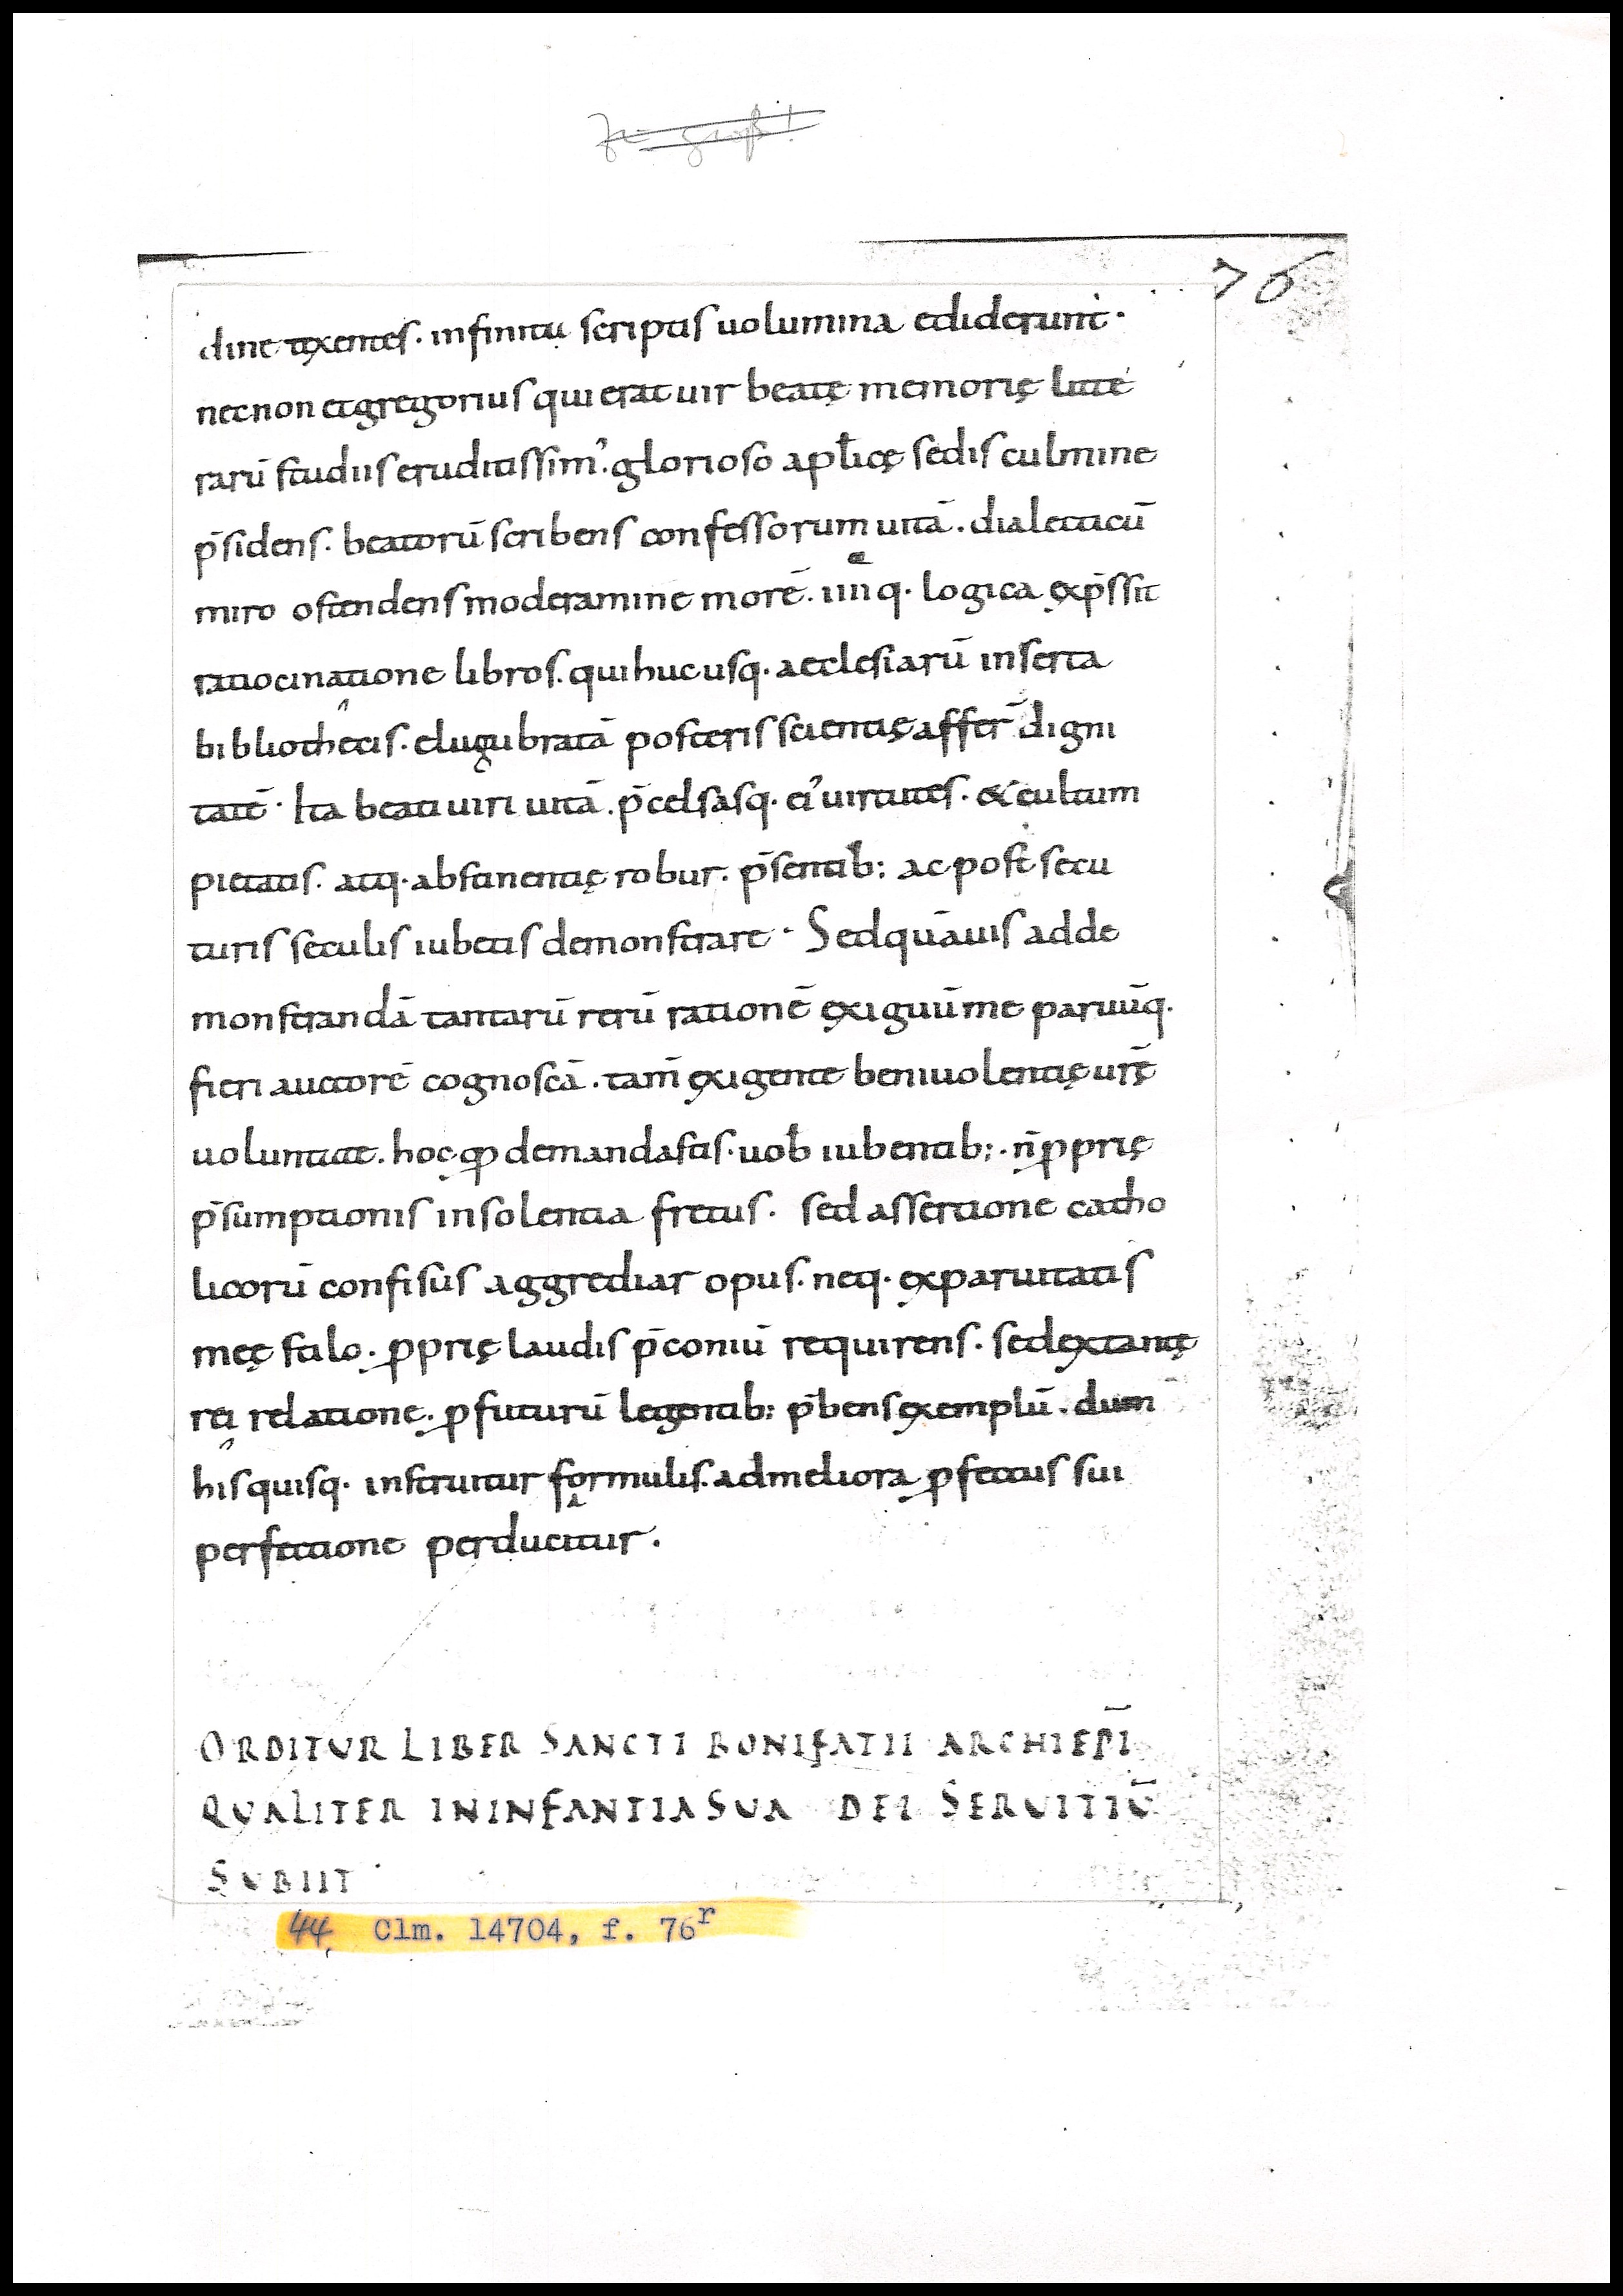 76
dine texentes. infinita scriptis uolumina ediderunt.
necnon et gregorius qui erat uir beatę memorię litte
rarū studiis eruditissim᾽. glorioso apl̄icę sedis culmine
p̄sidens. beatorū scribens confessorum uitā. dialecticū
miro ostendens moderamine morē. iiii q. logica exp̄ssit
ratiocinatione libros. qui huc usq. aecclesiarū inserta
bibliothecis. elugubratā posteris scientię affer̄ digni
tatē. Ita beati uiri uitā. p̄celsasq. ei᾽ uirtutes. & cultum
pietatis. atq. abstinentię robur. p̄sentib; ac post secu
turis seculis iubetis demonstrare. Sed quāuis ad de
monstrandā tantarū rerū rationē exiguū me paruūq.
fieri auctorē cognoscā. tam̄ exigente beniuolentię ur̄ę
uoluntate. hoc qđ demandastis. uob̄ iubentib;. n̄ ꝓprię
p̄sumptionis insolentia fretus. sed assertione catho
licorū confisus aggrediar opus. neq. ex paruitatis
meę stilo. ꝓprię laudis p̄coniū requirens. sed ex tantę
rei relatione. ꝓfuturū legentib; p̄bens exemplū. dum
his quisq. instruitur formulis. ad meliora ꝓfectus sui
perfectione perducitur.
ORDITUR LIBER SANCTI BONIFATII ARCHIEP̄I
QUALITER IN INFANTIA SUA DEI SERUITIŪ
SUBIIT
44, Clm. 14704, f. 76r